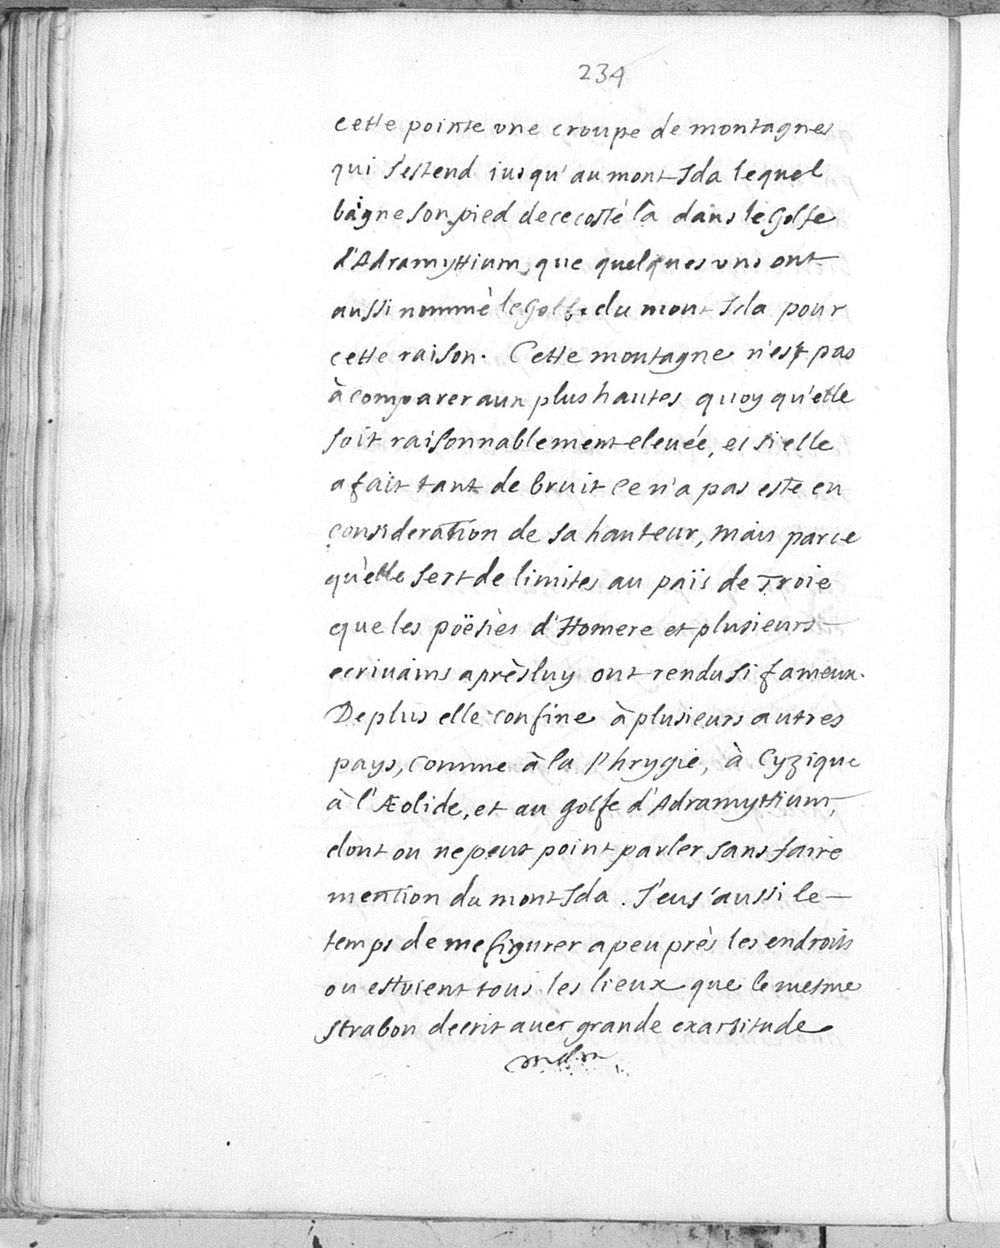 234
cette pointe vne croupe de montagnes
qui s'estend iusqu'au mont Ida lequel
bàigne son pied de ce costé là dans le Golfe
d'Adramyttium, que quelques vns ont
aussi nommè le Golfe du mont Ida pour
cette raison. Cette montagne n'est pas
à comparer aux plus hautes quoy qu'elle
soit raisonnablement eleuée, et si elle
a fait tant de bruit ce n'a pas esté en
consideration de sa hauteur, mais parce
qu'elle sert de limites au païs de Troie
que les poësies d'Homere et plusieurs
ecriuains après luy ont rendu si fameux.
De plus elle confine à plusieurs autres
pays, comme à la Phrygie, à Cyzique
à l'Æolide, et au golfe d'Adramyttium,
dont on ne peut point parler sans faire
mention du mont Ida. J'eus aussi le
temps de me figurer a peu près les endroits
ou estoient tous les lieux que le mesme
Strabon decrit auec grande exactitude